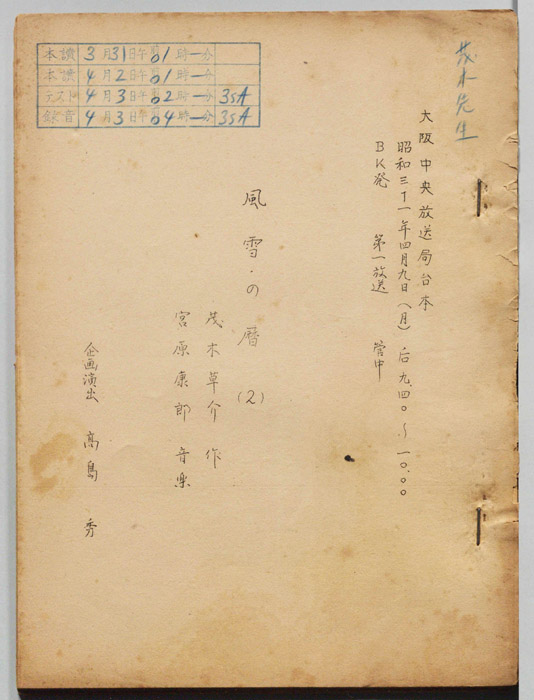 茂木先生
大阪中央放送局台本
昭和三十一年四月九日(月)后九.四〇～一〇.〇〇
BK発 第一放送 管中
風雪の暦(2)
茂木草介 作
宮原康郎 音楽
企画演出 高島 秀
本讀 3月31日午后1時一分
本讀 4月2日午后1時一分
テスト 4月3日午后2時一分 3sA
録音 4月3日午后4時一分 3sA